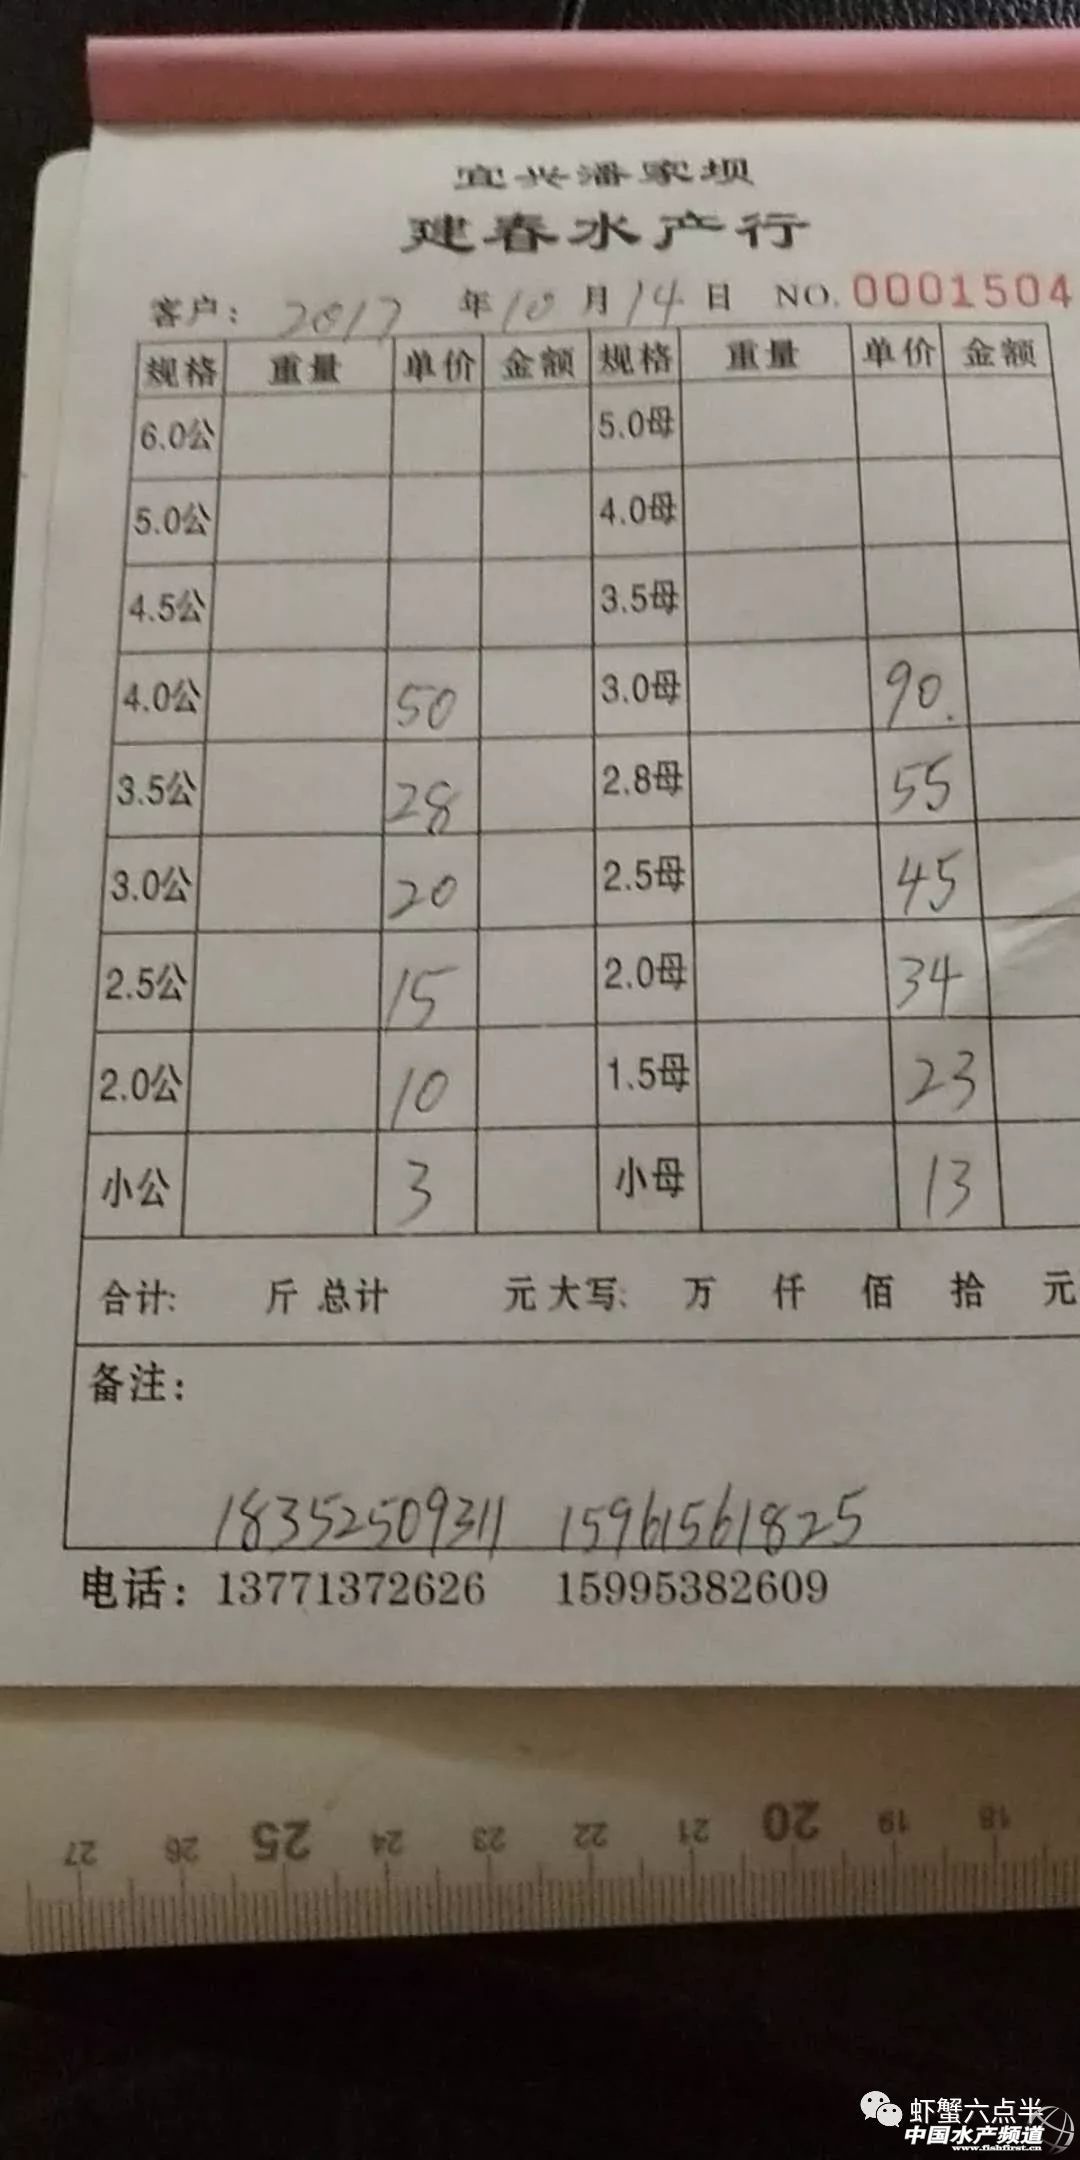 宜兴潘家坝
建春水产行
客户: 2017 年 10 月 14 日 NO. 0001504
规格 重量 单价 金额 规格 重量 单价 金额
6.0公 5.0母
5.0公 4.0母
4.5公 3.5母
4.0公 50 3.0母 90.
3.5公 28 2.8母 55
3.0公 20 2.5母 45
2.5公 15 2.0母 34
2.0公 10 1.5母 23
小公 3 小母 13
合计: 斤 总计 元 大写: 万 仟 佰 拾 元
备注:
18352509311 15961561825
电话: 13771372626 15995382609
27 26 25 24 23 22 21 20 19 18
虾蟹六点半
中国水产频道
www.fishfirst.cn